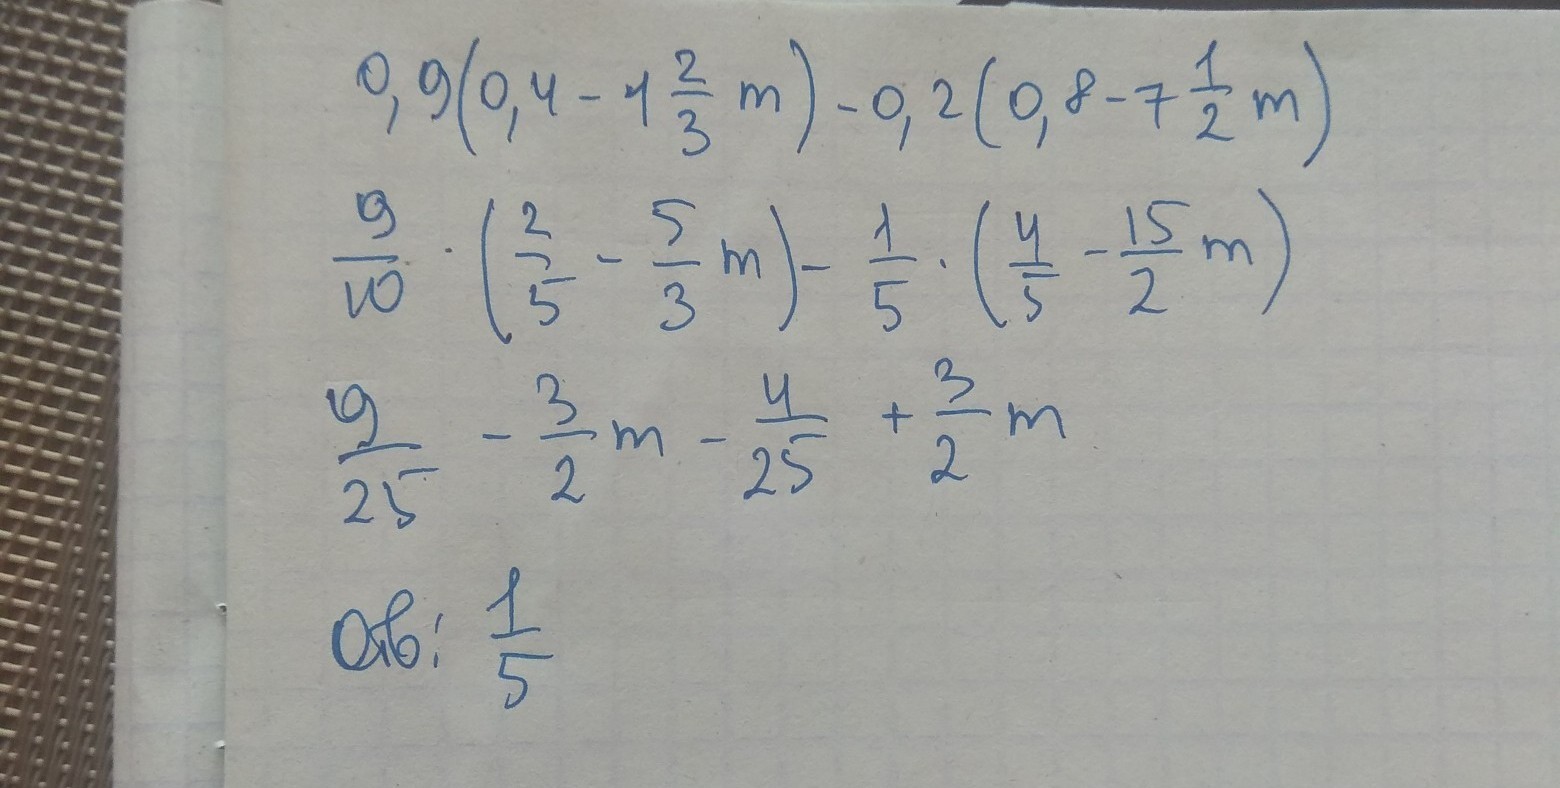 0,9(0,4 - 1 2/3 m) - 0,2(0,8 - 7 1/2 m)
9/10 · (2/5 - 5/3 m) - 1/5 · (4/5 - 15/2 m)
9/25 - 3/2 m - 4/25 + 3/2 m
Отв: 1/5